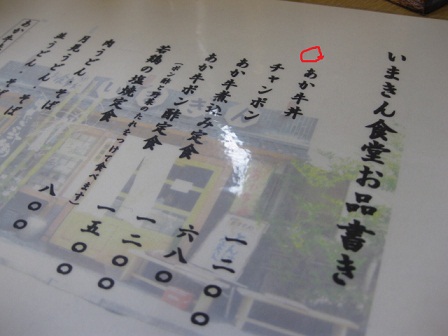 いまきん食堂お品書き
あか牛丼 一二〇〇
チャンポン 六八〇
あか牛煮込み定食 一二〇〇
あか牛ポン酢定食 一五〇〇
(ポン酢と のたれをつけて食べます)
若鶏の塩焼定食 八〇〇
肉うどん
月見うどん・そば
並うどん・そば